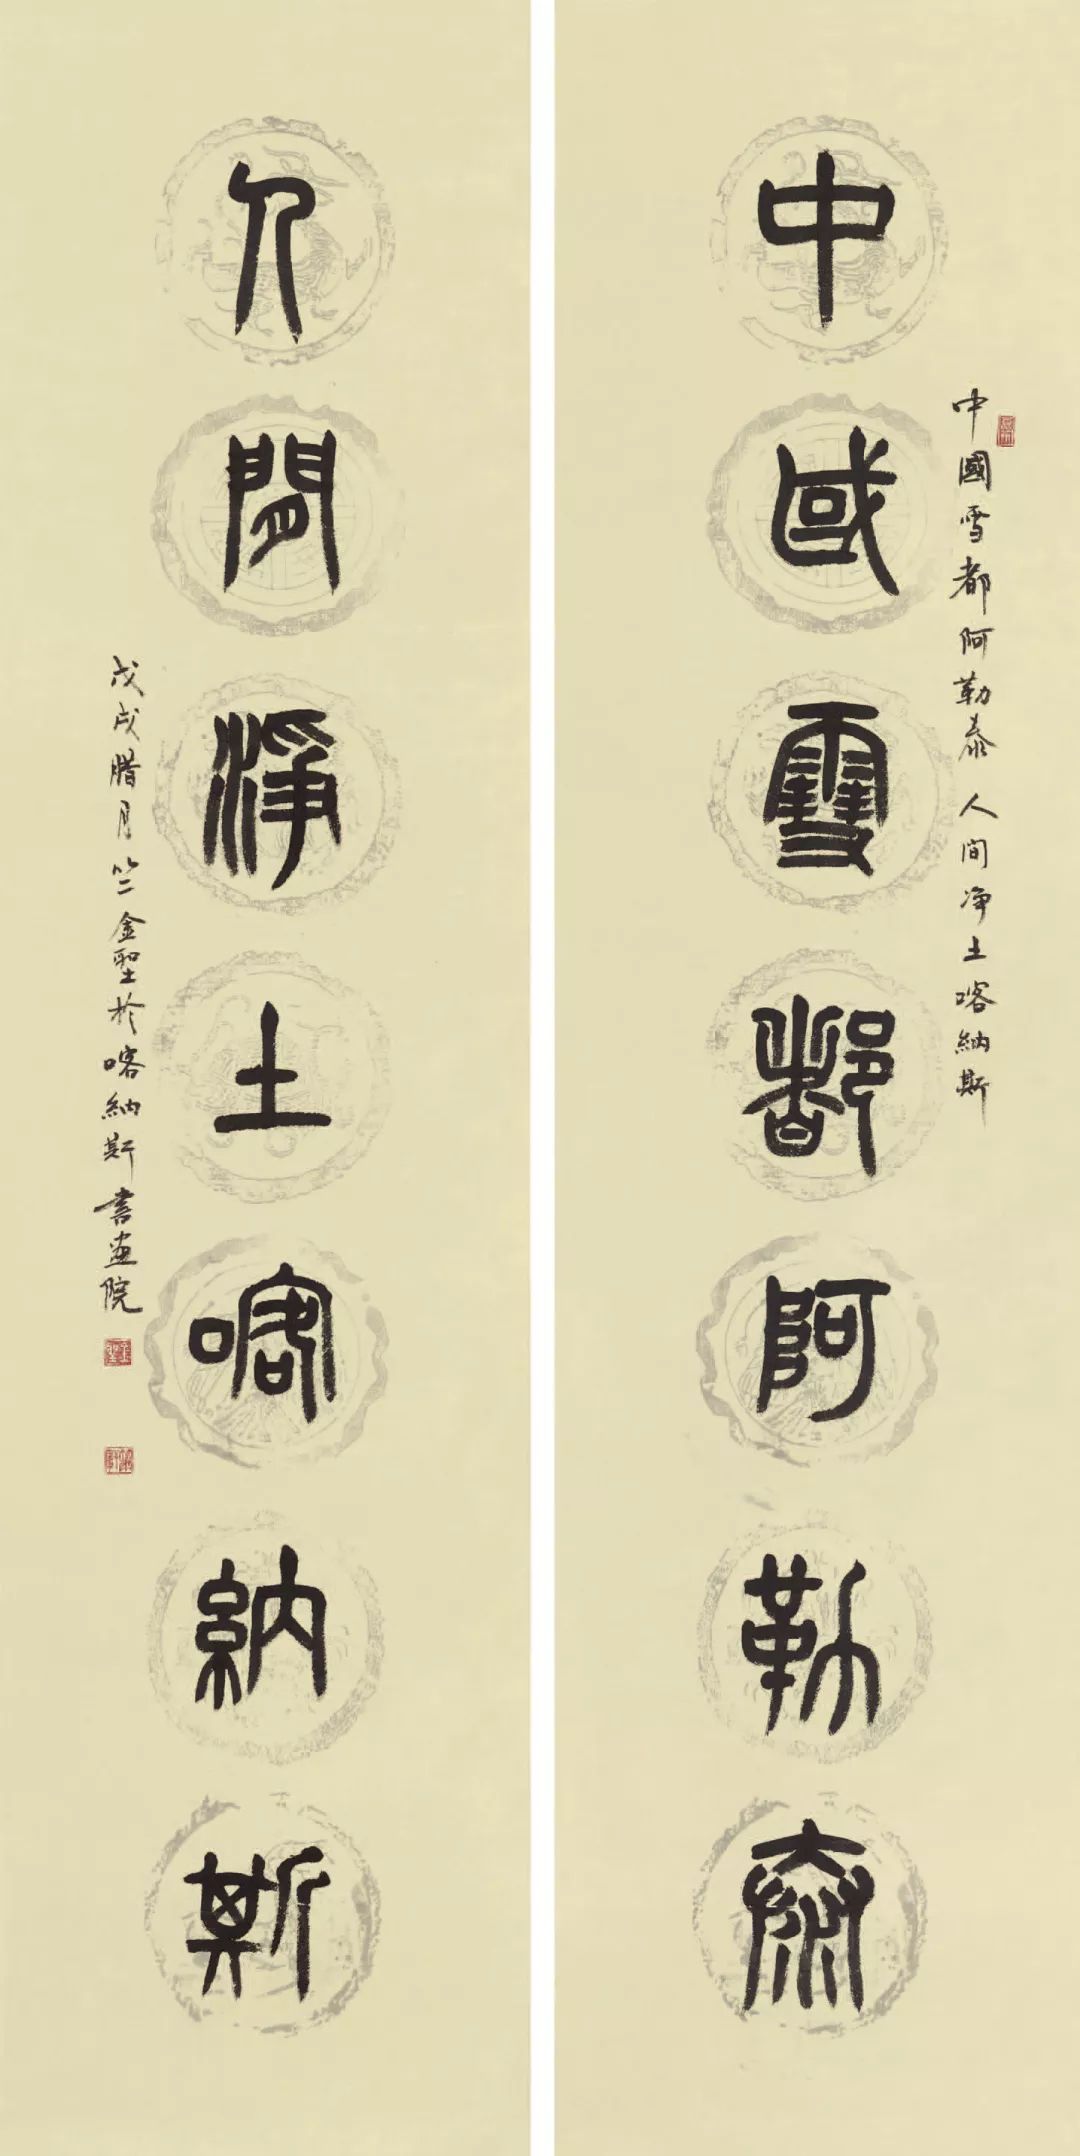 中國雪都阿勒泰
中國雪都阿勒泰 人间净土喀納斯
人間淨土喀納斯
戊戌腊月竺金聖於喀納斯書画院